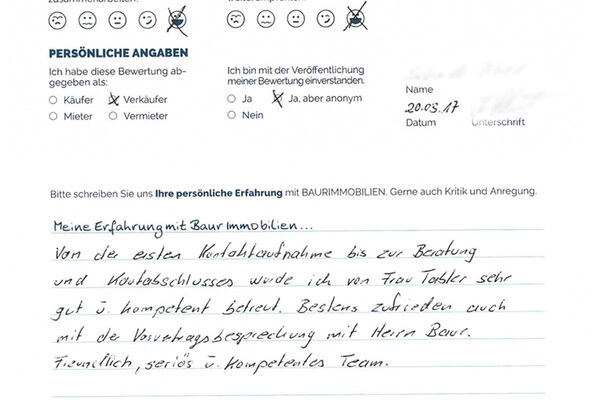 zusammenarbeiten?
weiterempfehlen?
PERSÖNLICHE ANGABEN
Ich habe diese Bewertung ab-
gegeben als:
Käufer Verkäufer
Mieter Vermieter
Ich bin mit der Veröffentlichung
meiner Bewertung einverstanden.
Ja Ja, aber anonym
Nein
Name
20.03.17
Datum Unterschrift
Bitte schreiben Sie uns Ihre persönliche Erfahrung mit BAURIMMOBILIEN. Gerne auch Kritik und Anregung.
Meine Erfahrung mit Baur Immobilien...
Von der ersten Kontaktaufnahme bis zur Beratung
und Kaufabschlusses wurde ich von Frau Tabler sehr
gut u. kompetent betreut. Bestens zufrieden auch
mit der Vorvertragsbesprechung mit Herrn Baur.
Freundlich, seriös u. kompetentes Team.